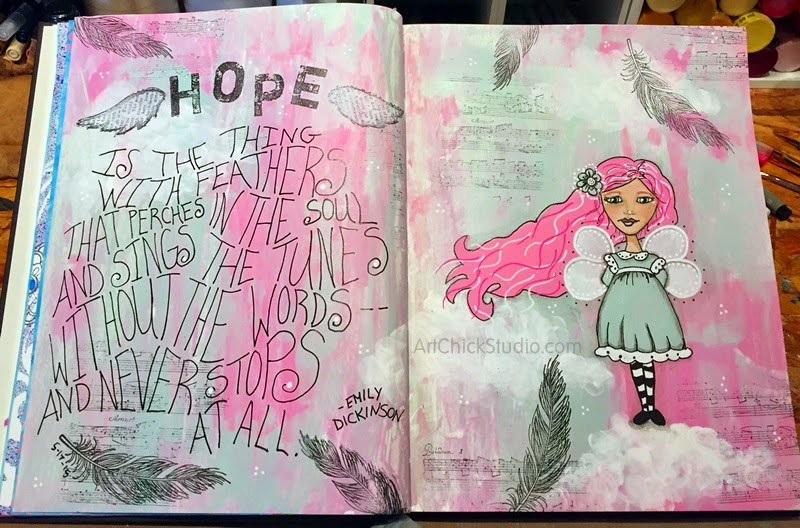 HOPE
IS THE THING
WITH FEATHERS
THAT PERCHES IN THE SOUL
AND SINGS THE TUNES
WITHOUT THE WORDS--
AND NEVER STOPS
AT ALL.
-EMILY
DICKINSON
ArtChickStudio.com